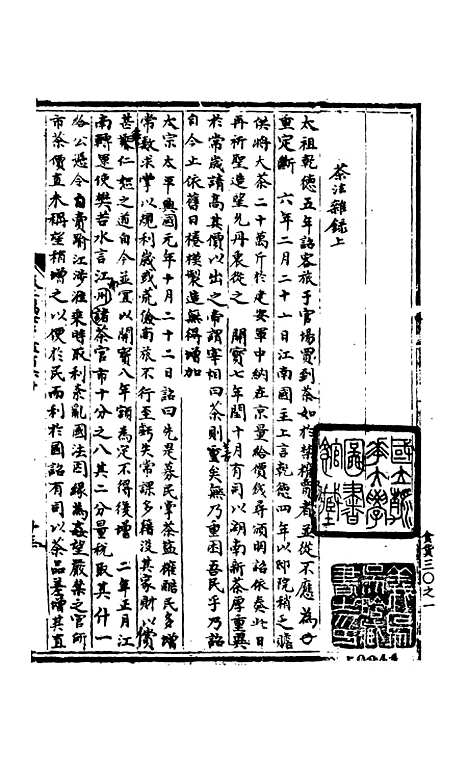 茶法雜録上
太祖乾德五年詔客旅于官場買到茶如於禁榷並從不應為
重定斷　六年二月二十一日江南國主上言乾德四年以邸院稍乏贍
供將大茶二十萬斤於建安軍中納在京量給價錢尋頒明詔依奏此日
再祈聖造望允丹衷從之　開寶七年閏十月有司以湖南新茶厚重異
於常歲請高其價以出之帝謂宰相曰茶則重矣無乃重困吾民乎乃詔
自今止依舊日樣模製造無得增加
太宗太平興國元年十月二十二日詔曰先是募民掌茶鹽榷酤民多增
常數求掌以規利歲或荒儉商旅不行至虧失常課多籍沒其家財以償
甚乖仁恕之道自今並宜以開寶八年額為定不得復增　二年正月江
南轉運使樊若水言江州諸茶官市十分之八其二分量稅取其什一
給公憑令自賣踰江涉淮乘時取利紊亂國法因緣為姦望嚴禁之官所
市茶價直木稱望稍增之以便於民而利於國詔有司以茶品差增其直
食貨三〇之一
國立
大學
圖書
館藏